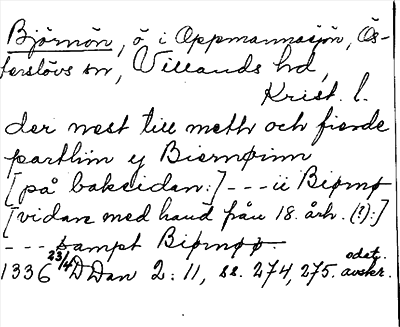 Björnön, ö i Oppmannasjön, Ös-
terslövs sn, Villands hd,
Krist. l.
der nest till meth och fierde
partthin ij Biernøinn
[på baksidan:] --- ii Biørnø
[vidare med hand från 18. årh. (?):]
--- sampt Biørnøø.
1336 23/4 DDan 2: 11, ss. 274, 275. odat. avskr.